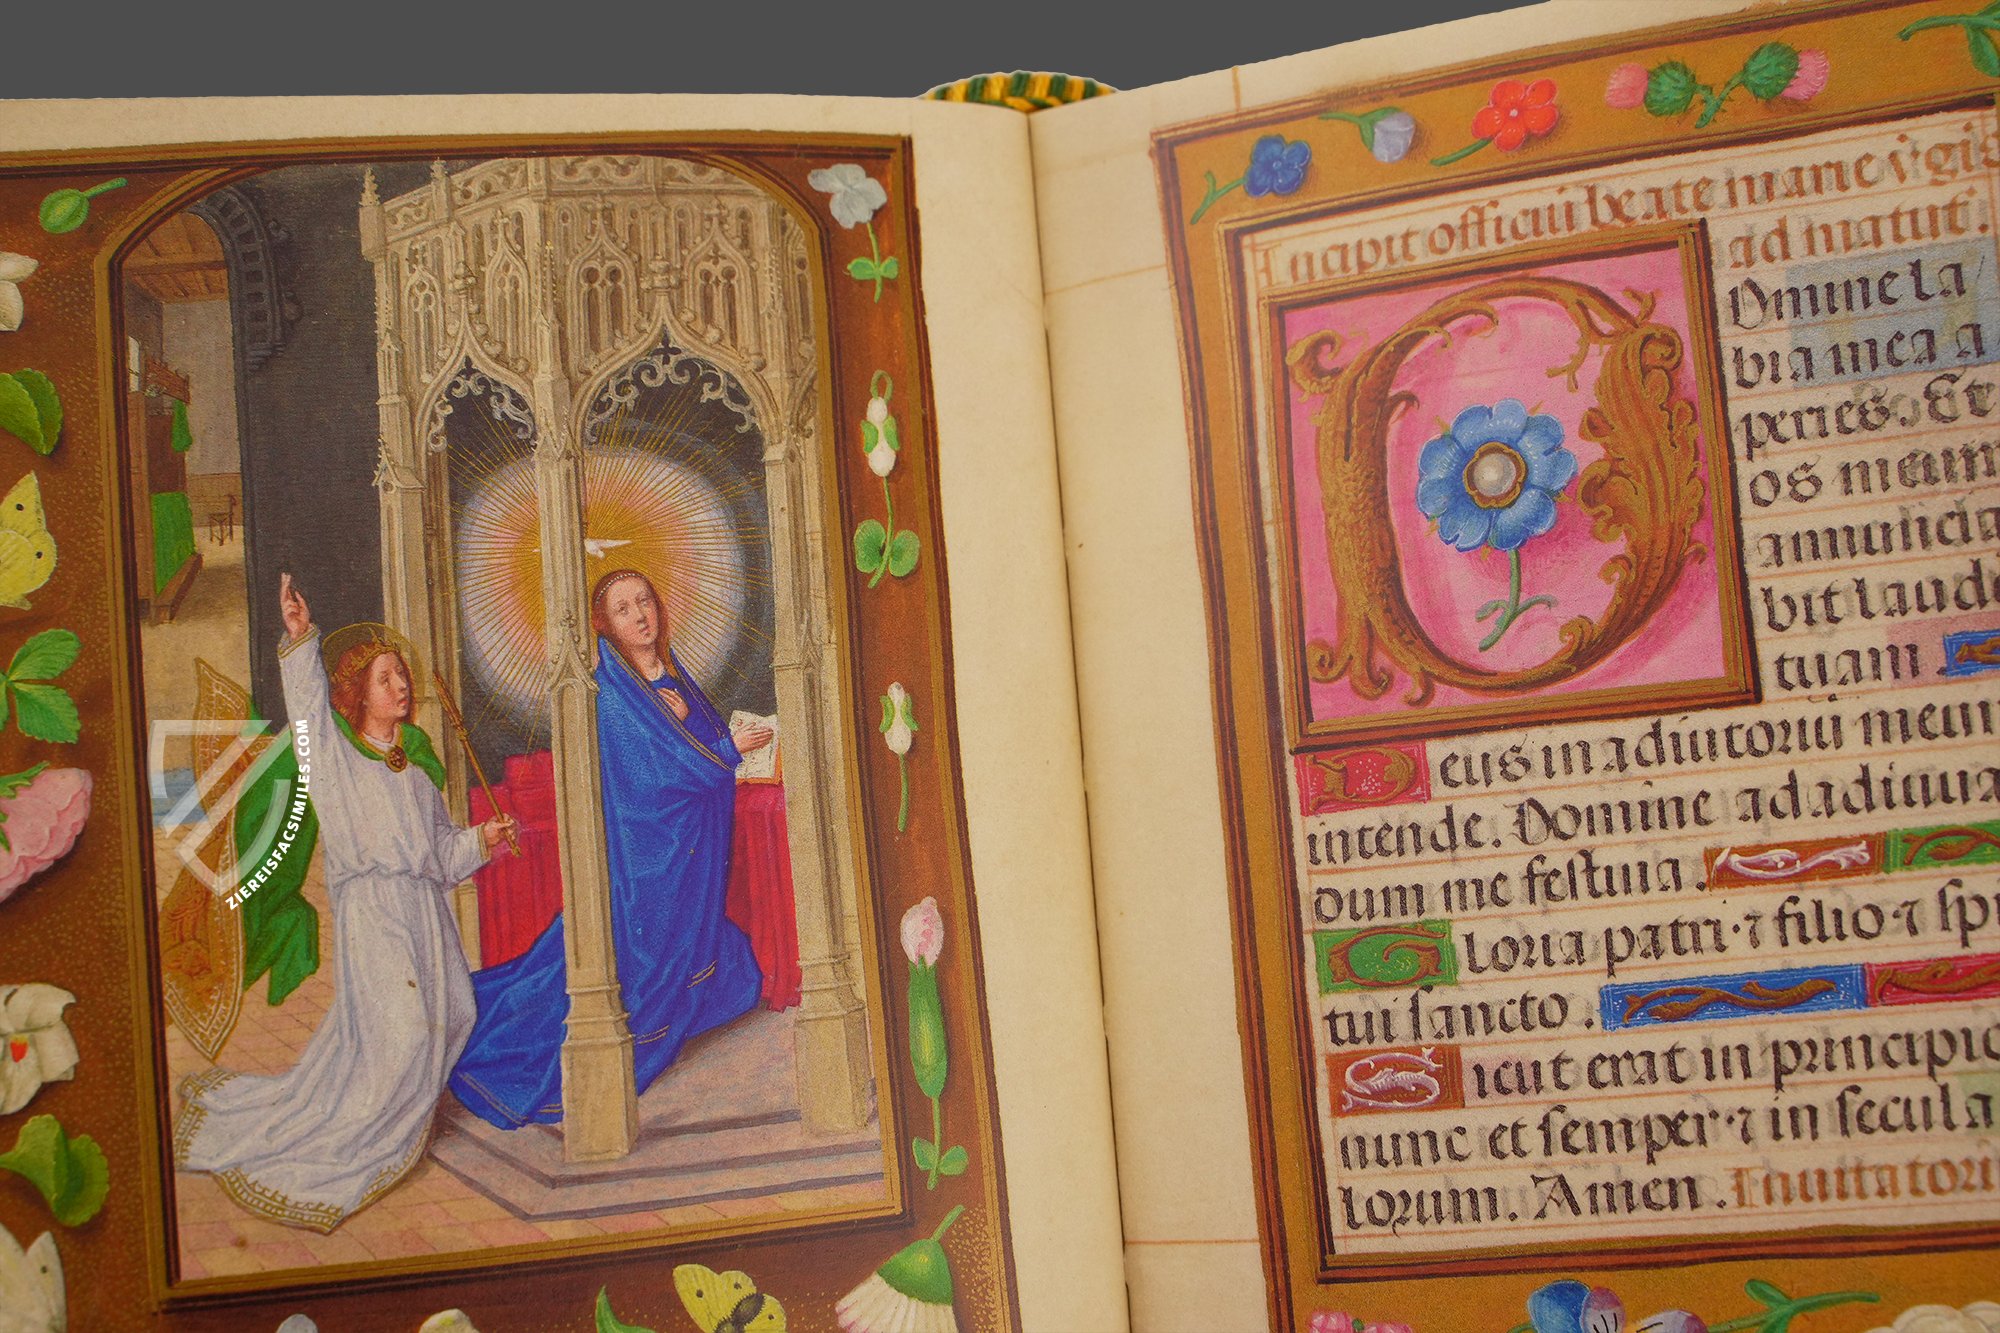 ZIEREISFACSIMILES.COM
Incipit officiū beate marie v̄gis
ad matut̄.
Domine la
bia mea a
peries. Et
os meum
annuncia
bit laude
tuam
Deus in adiutoriū meum
intende. Domine ad adiuua
dum me festina.
Gloria patri · ⁊ filio · ⁊ spi
tui sancto.
Sicut erat in principio
nunc et semper · ⁊ in secula
lorum. Amen. Inuitatori